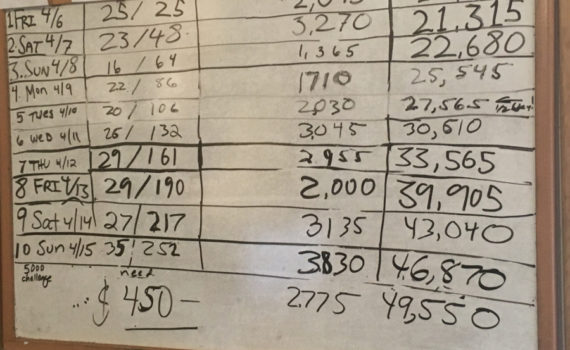 1 FRI 4/6 25/25 3,270 21,315
2. SAT 4/7 23/48 1,365 22,680
3. SUN 4/8 16/64 25,545
4 Mon 4/9 22/86 1710
5 TUES 4/10 20/106 2030 27,565
6 WED 4/11 26/132 3,045 30,610
7 THU 4/12 29/161 2955 33,565
8 FRI 4/13 29/190 2,000 39,905
9 Sat 4/14 27/217 3135 43,040
10 Sun 4/15 35/252 3830 46,870
5000 challenge need
$ 450- 2775 49,550